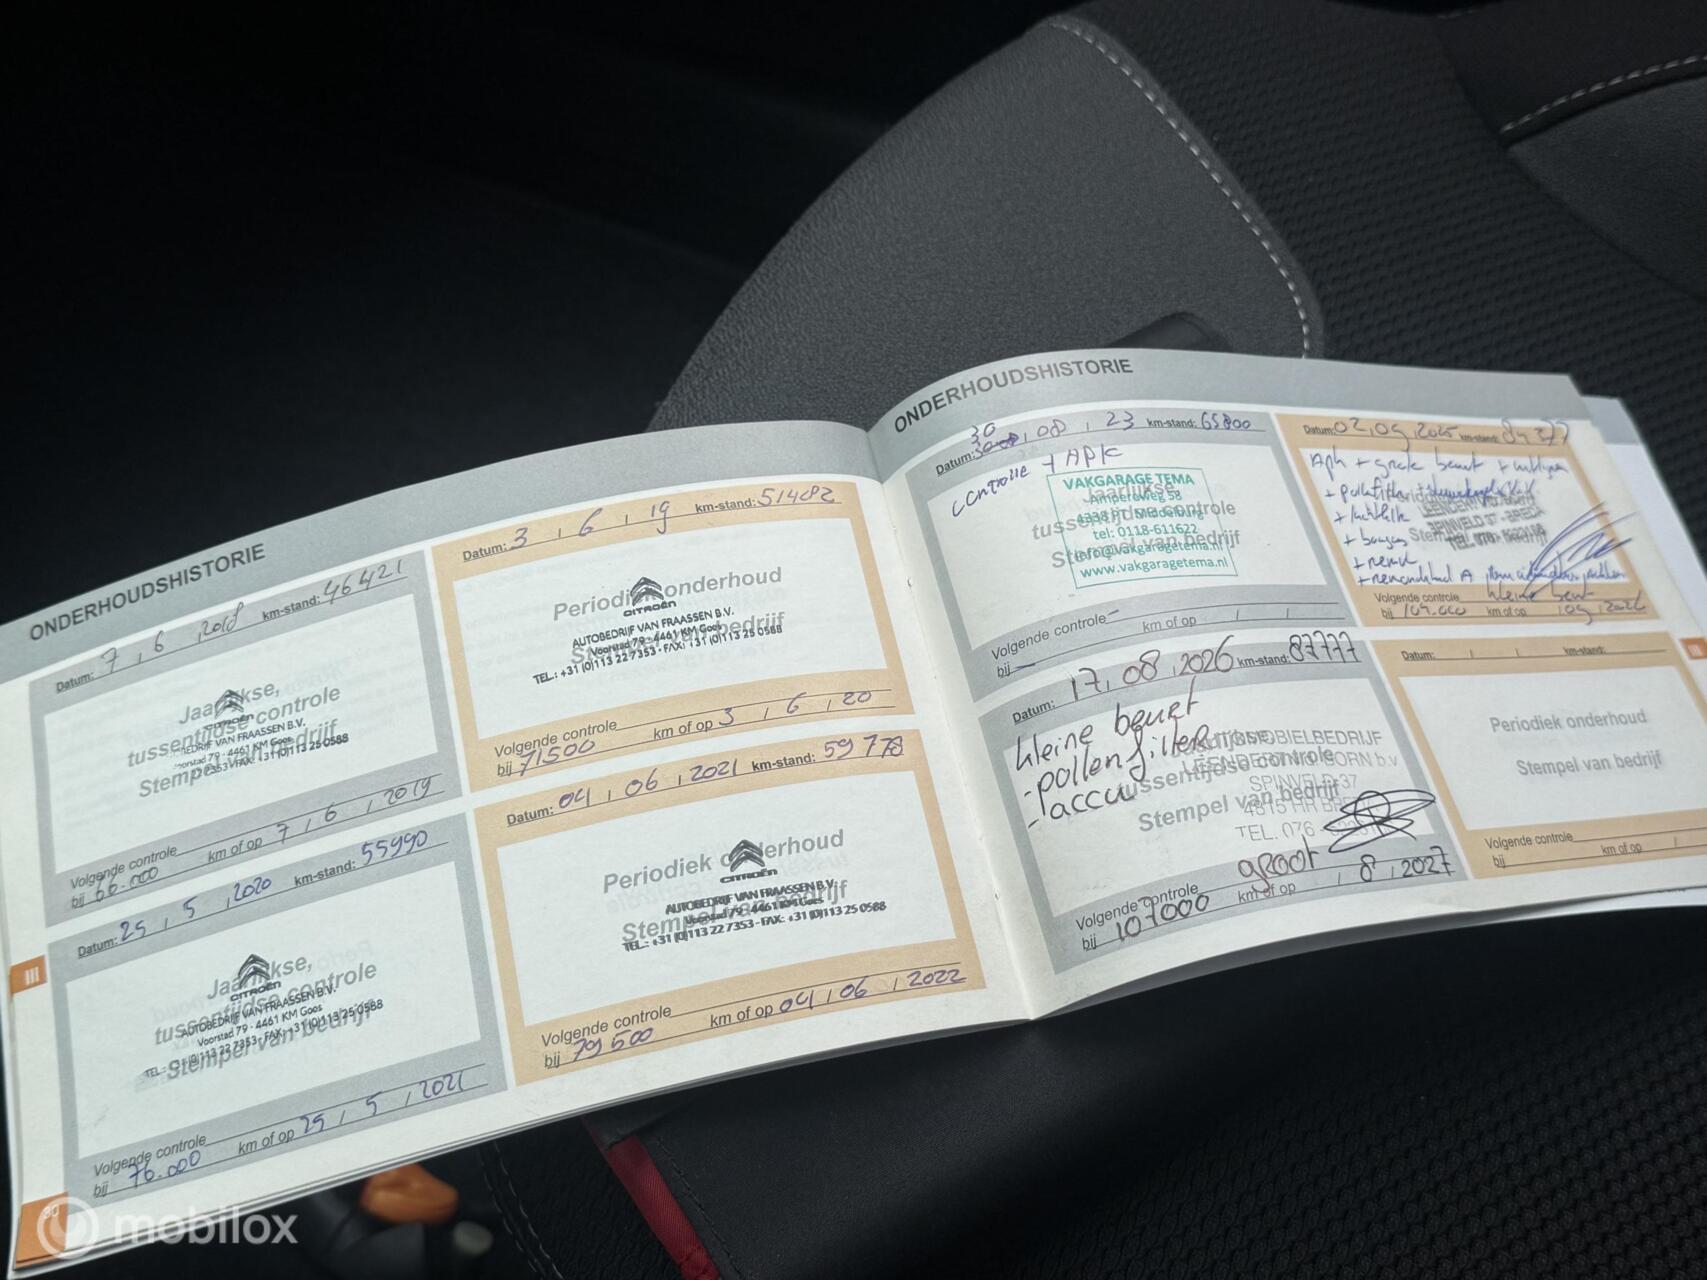 ONDERHOUDSHISTORIE
Datum: 7 , 6 , 2018 km-stand: 46421
Jaarlijkse,
tussentijdse controle
Stempel van bedrijf
CITROËN
BEDRIJF VAN FRAASSEN B.V.
Voorstad 79 - 4461 KM Goes
7353 - FAX: +31 (0)113 25 0588
Volgende controle
bij 66.000 km of op 7 , 6 , 2019
Datum: 25 , 5 , 2020 km-stand: 55990
Jaarlijkse,
tussentijdse controle
Stempel van bedrijf
CITROËN
AUTOBEDRIJF VAN FRAASSEN B.V.
Voorstad 79 - 4461 KM Goes
TEL.: +31 (0)113 22 7353 - FAX: +31 (0)113 25 0588
Volgende controle
bij 76.000 km of op 25 , 5 , 2021
30
Datum: 3 , 6 , 19 km-stand: 51482
Periodiek onderhoud
Stempel van bedrijf
CITROËN
AUTOBEDRIJF VAN FRAASSEN B.V.
Voorstad 79 - 4461 KM Goes
TEL.: +31 (0)113 22 7353 - FAX: +31 (0)113 25 0588
Volgende controle
bij 71500 km of op 3 , 6 , 20
Datum: 04 , 06 , 2021 km-stand: 59 778
Periodiek onderhoud
Stempel van bedrijf
CITROËN
AUTOBEDRIJF VAN FRAASSEN B.V.
Voorstad 79 - 4461 KM Goes
TEL.: +31 (0)113 22 7353 - FAX: +31 (0)113 25 0588
Volgende controle
bij 79 500 km of op 04 , 06 , 2022
III
ONDERHOUDSHISTORIE
Datum: 30 , 08 , 23 km-stand: 65800
Controle + APK
Jaarlijkse
tussentijdse controle
Stempel van bedrijf
VAKGARAGE TEMA
Ampereweg 58
4338 PT Middelburg
tel: 0118-611622
info@vakgaragetema.nl
www.vakgaragetema.nl
Volgende controle
bij km of op
Datum: 17 , 08 , 2026 km-stand: 87777
kleine beurt
- pollenfilter
- accu
Jaarlijkse
tussentijdse controle
Stempel van bedrijf
AUTOMOBIELBEDRIJF
LEENDERT V DOORN b.v
SPINVELD 37
4815 HR BREDA
TEL. 076
groot
Volgende controle
bij 107000 km of op , 8 , 2027
Datum: 02 , 09 , 2025 km-stand:
Apk + grote beurt
+ luchtfilter
Stempel
SPINVELD 37 - BREDA
Volgende controle kleine beurt
bij km of op
Datum: km-stand:
Periodiek onderhoud
Stempel van bedrijf
Volgende controle
bij km of op
III
mobilox